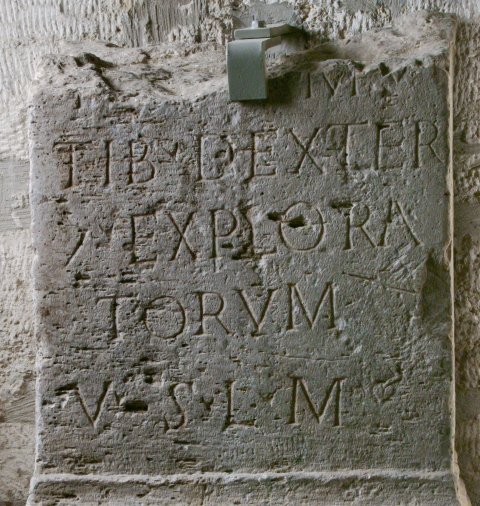 TIB·DEXTER
EXPLORA
TORVM
V·S·L·M